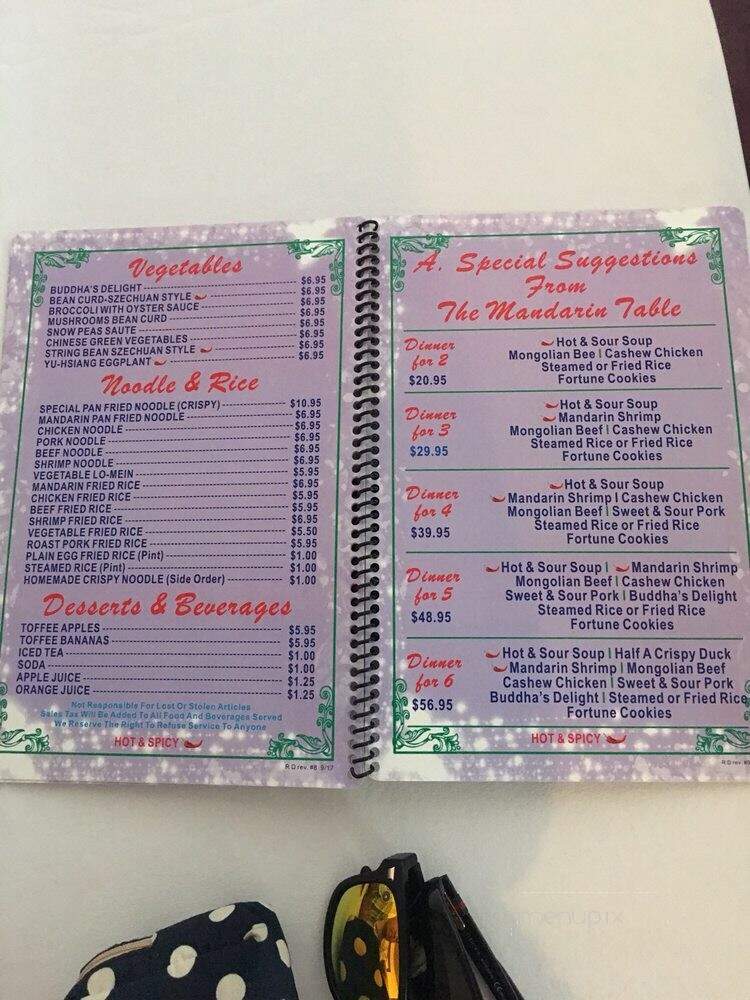 Vegetables
BUDDHA'S DELIGHT $6.95
BEAN CURD-SZECHUAN STYLE $6.95
BROCCOLI WITH OYSTER SAUCE $6.95
MUSHROOMS BEAN CURD $6.95
SNOW PEAS SAUTE $6.95
CHINESE GREEN VEGETABLES $6.95
STRING BEAN SZECHUAN STYLE $6.95
YU-HSIANG EGGPLANT $6.95
Noodle & Rice
SPECIAL PAN FRIED NOODLE (CRISPY) $10.95
MANDARIN PAN FRIED NOODLE $6.95
CHICKEN NOODLE $6.95
PORK NOODLE $6.95
BEEF NOODLE $6.95
SHRIMP NOODLE $6.95
VEGETABLE LO-MEIN $5.95
MANDARIN FRIED RICE $6.95
CHICKEN FRIED RICE $5.95
BEEF FRIED RICE $5.95
SHRIMP FRIED RICE $6.95
VEGETABLE FRIED RICE $5.50
ROAST PORK FRIED RICE $5.95
PLAIN EGG FRIED RICE (Pint) $1.00
STEAMED RICE (Pint) $1.00
HOMEMADE CRISPY NOODLE (Side Order) $1.00
Desserts & Beverages
TOFFEE APPLES $5.95
TOFFEE BANANAS $5.95
ICED TEA $1.00
SODA $1.00
APPLE JUICE $1.25
ORANGE JUICE $1.25
Not Responsible For Lost Or Stolen Articles
Sales Tax Will Be Added To All Food And Beverages Served
We Reserve The Right To Refuse Service To Anyone
HOT & SPICY
R D rev. #8 9/17
A. Special Suggestions
From
The Mandarin Table
Dinner
for 2
$20.95
Hot & Sour Soup
Mongolian Bee | Cashew Chicken
Steamed or Fried Rice
Fortune Cookies
Dinner
for 3
$29.95
Hot & Sour Soup
Mandarin Shrimp
Mongolian Beef | Cashew Chicken
Steamed Rice or Fried Rice
Fortune Cookies
Dinner
for 4
$39.95
Hot & Sour Soup
Mandarin Shrimp | Cashew Chicken
Mongolian Beef | Sweet & Sour Pork
Steamed Rice or Fried Rice
Fortune Cookies
Dinner
for 5
$48.95
Hot & Sour Soup | Mandarin Shrimp
Mongolian Beef | Cashew Chicken
Sweet & Sour Pork | Buddha's Delight
Steamed Rice or Fried Rice
Fortune Cookies
Dinner
for 6
$56.95
Hot & Sour Soup | Half A Crispy Duck
Mandarin Shrimp | Mongolian Beef
Cashew Chicken | Sweet & Sour Pork
Buddha's Delight | Steamed or Fried Rice
Fortune Cookies
HOT & SPICY
R D rev.